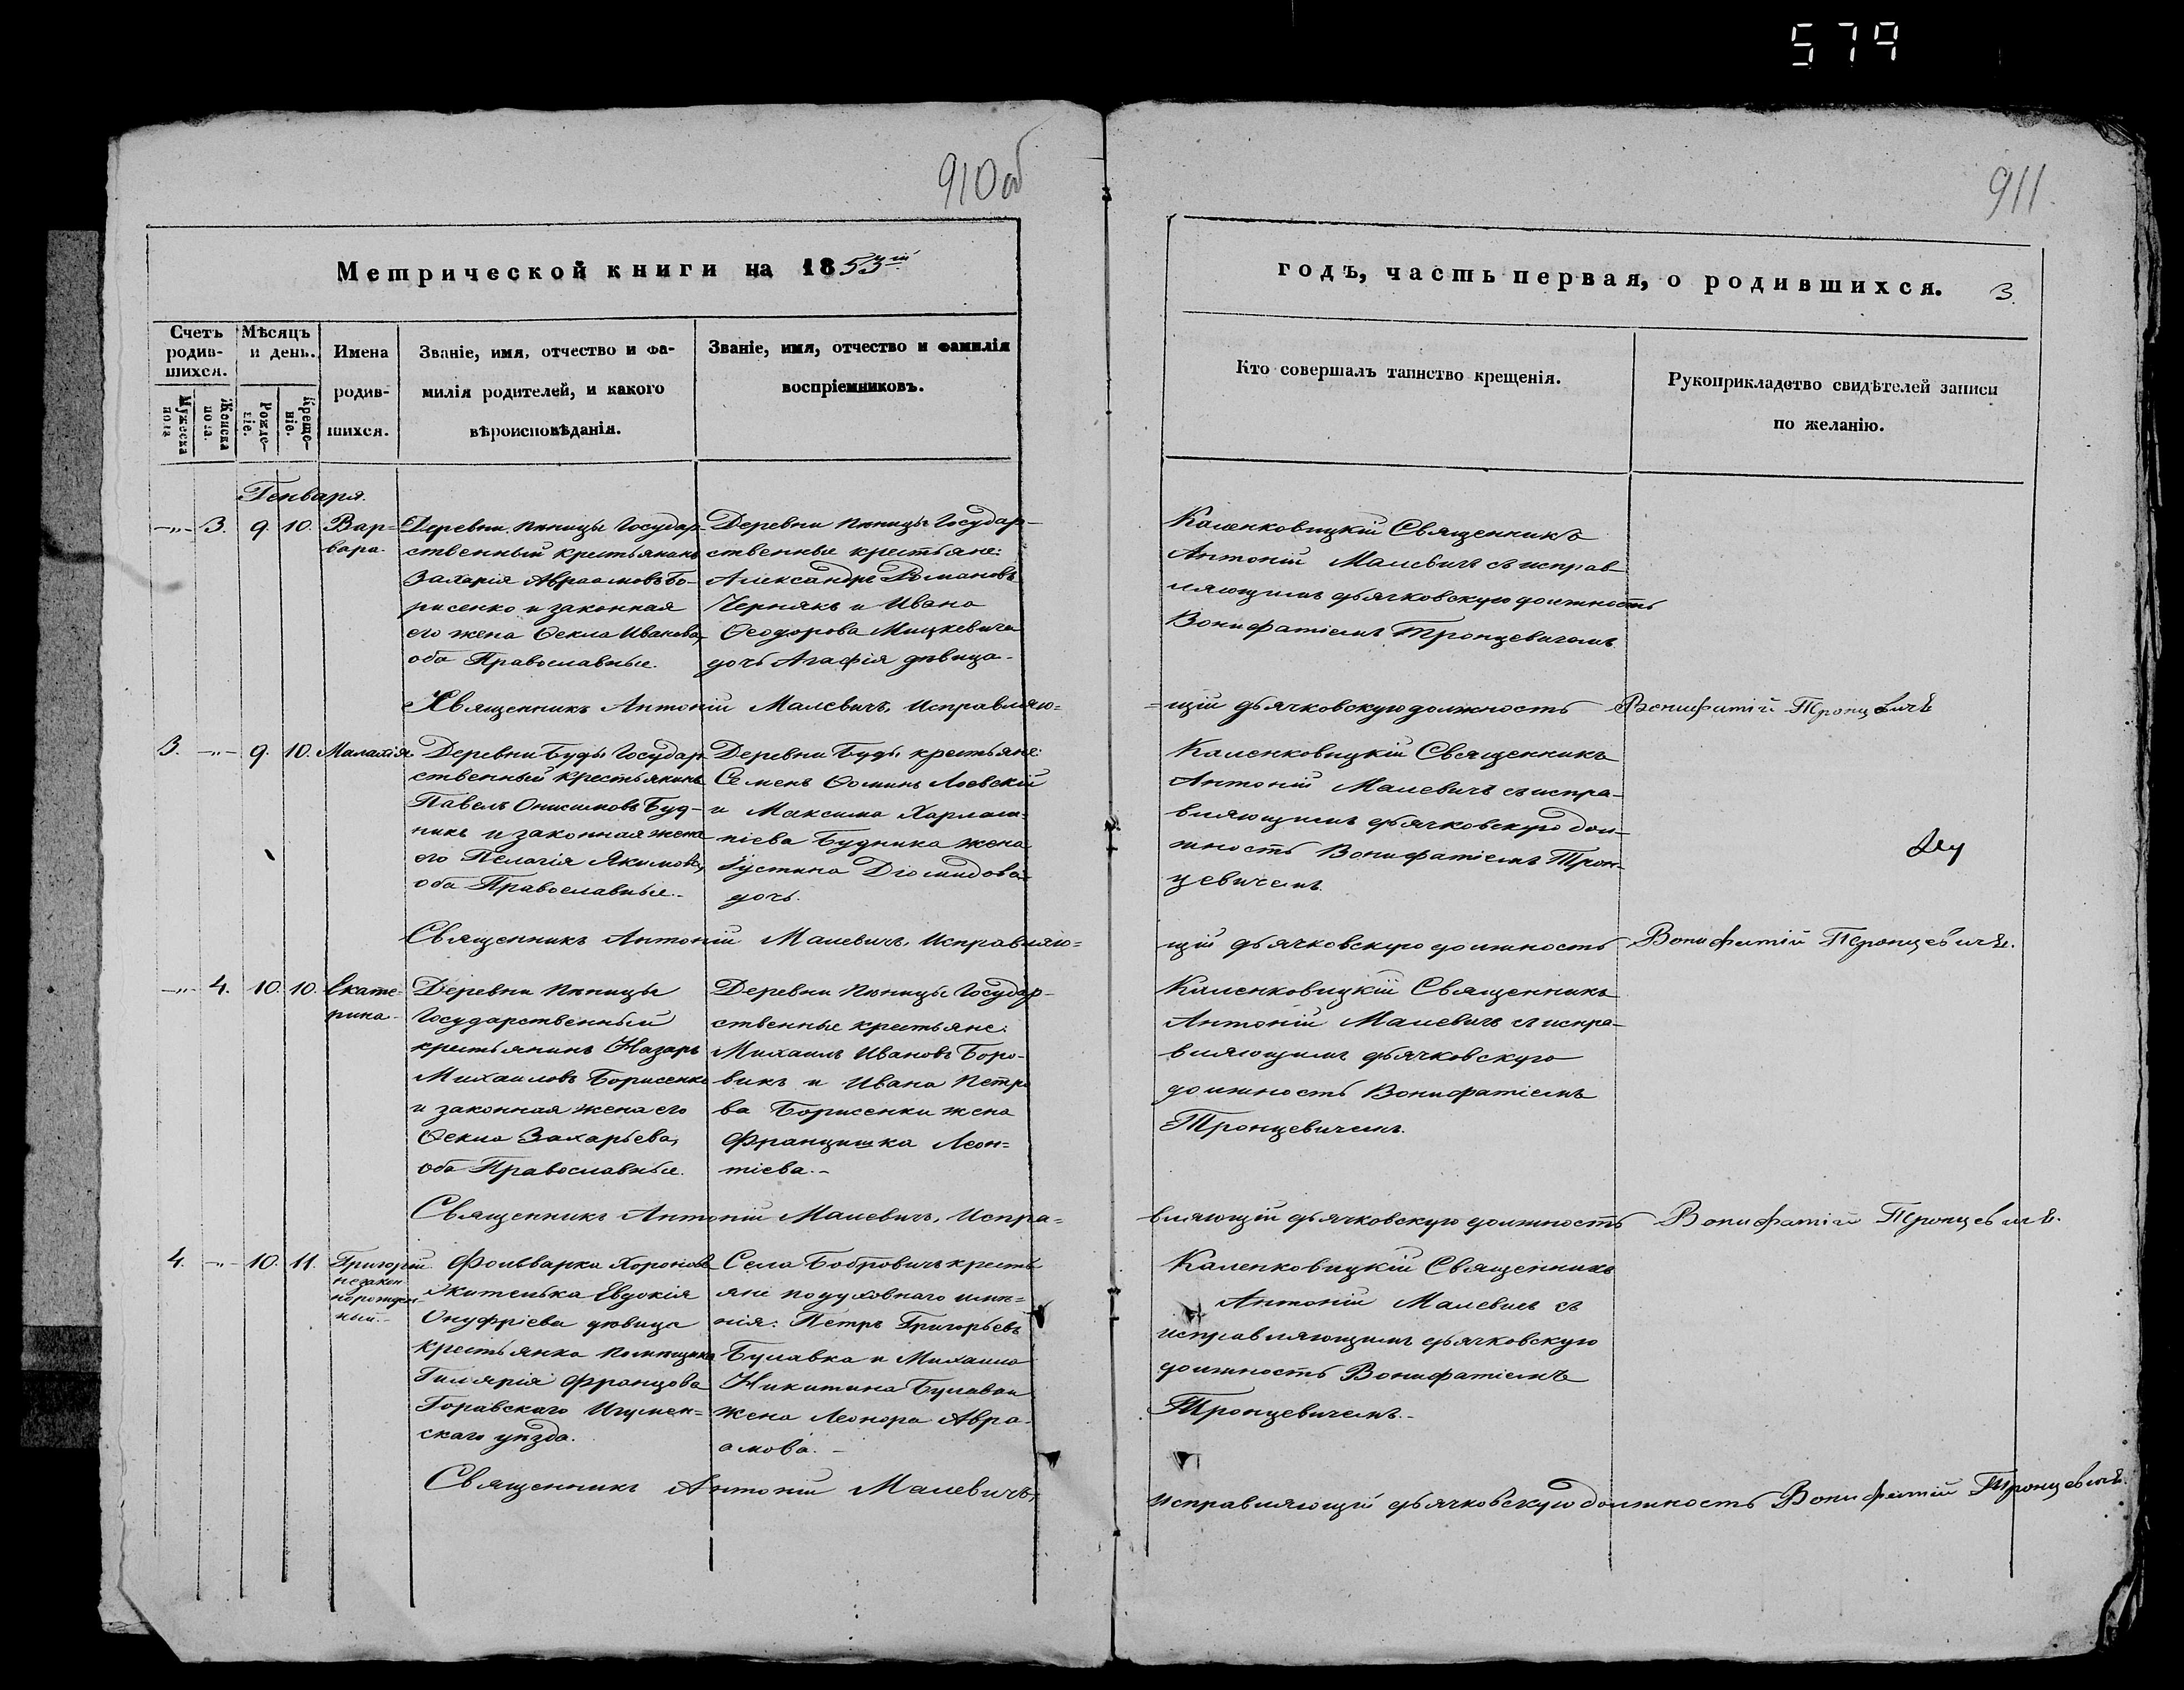 579
910об
911
Метрической книги на 1853ій
годъ, часть первая, о родившихся.
3.
Счетъ родив-
шихся.
Мужеска пола
Женска пола.
Мѣсяцъ
и день.
Рожде-
ніе.
Креще-
ніе.
Имена
родив-
шихся.
Званіе, имя, отчество и фа-
милія родителей, и какого
вѣроисповѣданія.
Званіе, имя, отчество и фамилія
воспріемниковъ.
Кто совершалъ таинство крещенія.
Рукоприкладство свидѣтелей записи
по желанію.
Генваря.
-„- 3. 9. 10. Вар=
вара.
Деревни Пѣницы Государ-
ственный крестьянинъ
Захарія Авраамовъ Бо-
рисенко и законная
его жена Ѳекла Иванова,
оба Православные.
Деревни Пѣницы Государ-
ственные крестьяне:
Александръ Романовъ
Чернякъ и Ивана
Ѳеодорова Мицкевича
дочь Агафія дѣвица.
Каленковицкій Священникъ
Антоній Малевичъ съ исправ-
ляющимъ дьячковскую должность
Вонифатіемъ Тронцевичемъ
Священникъ Антоній Малевичъ, Исправляю=
=щій дьячковскую должность Вонифатій Тронцевичъ
3. -„- 9. 10. Малахія
Деревни Буды Государ-
ственный крестьянинъ
Павелъ Онисимовъ Буд-
никъ и законная жена
его Пелагія Якимова,
оба Православные.-
Деревни Буды крестьяне:
Семенъ Ѳоминъ Лоевскій
и Максима Харлам-
піева Будника жена
Іустина Діомидова
дочь.
Каленковицкій Священникъ
Антоній Малевичъ съ испра-
вляющимъ дьячковскую дол-
жность Вонифатіемъ Трон-
цевичемъ.
Священникъ Антоній Малевичъ, Исправляю=
щій дьячковскую должность Вонифатій Тронцевичъ.
-„- 4. 10. 10. Екате-
рина.
Деревни Пѣницы
Государственный
крестьянинъ Назаръ
Михаиловъ Борисенко
и законная жена его
Ѳекла Захарьева,
оба Православные.
Деревни Пѣницы Государ-
ственные крестьяне:
Михаилъ Ивановъ Боро-
викъ и Ивана Петро
ва Борисенки жена
Францишка Леон=
тіева.-
Каленковицкій Священникъ
Антоній Малевичъ съ испра-
вляющимъ дьячковскую
должность Вонифатіемъ
Тронцевичемъ.
Священникъ Антоній Малевичъ, Испра=
вляющій дьячковскую должность Вонифатій Тронцевичъ.
4. -„- 10. 11. Григорій
незакон
норожден-
ный.-
Фольварка
жителька Евдокія
Онуфріева дѣвица
крестьянка помѣщика
Гилярія Францова
Горавскаго Игумен=
скаго уѣзда.
Села Бобровичъ кресть
яне подуховнаго имѣ=
нія: Петръ Григорьевъ
Булавка и Михаила
Никитина Булавки
жена Леонора Авра-
амова.-
Каленковицкій Священникъ
Антоній Малевичъ съ
исправляющимъ дьячковскую
должность Вонифатіемъ
Тронцевичемъ.-
Священникъ Антоній Малевичъ,
исправляющій дьячковскую должность Вонифатій Тронцевичъ.